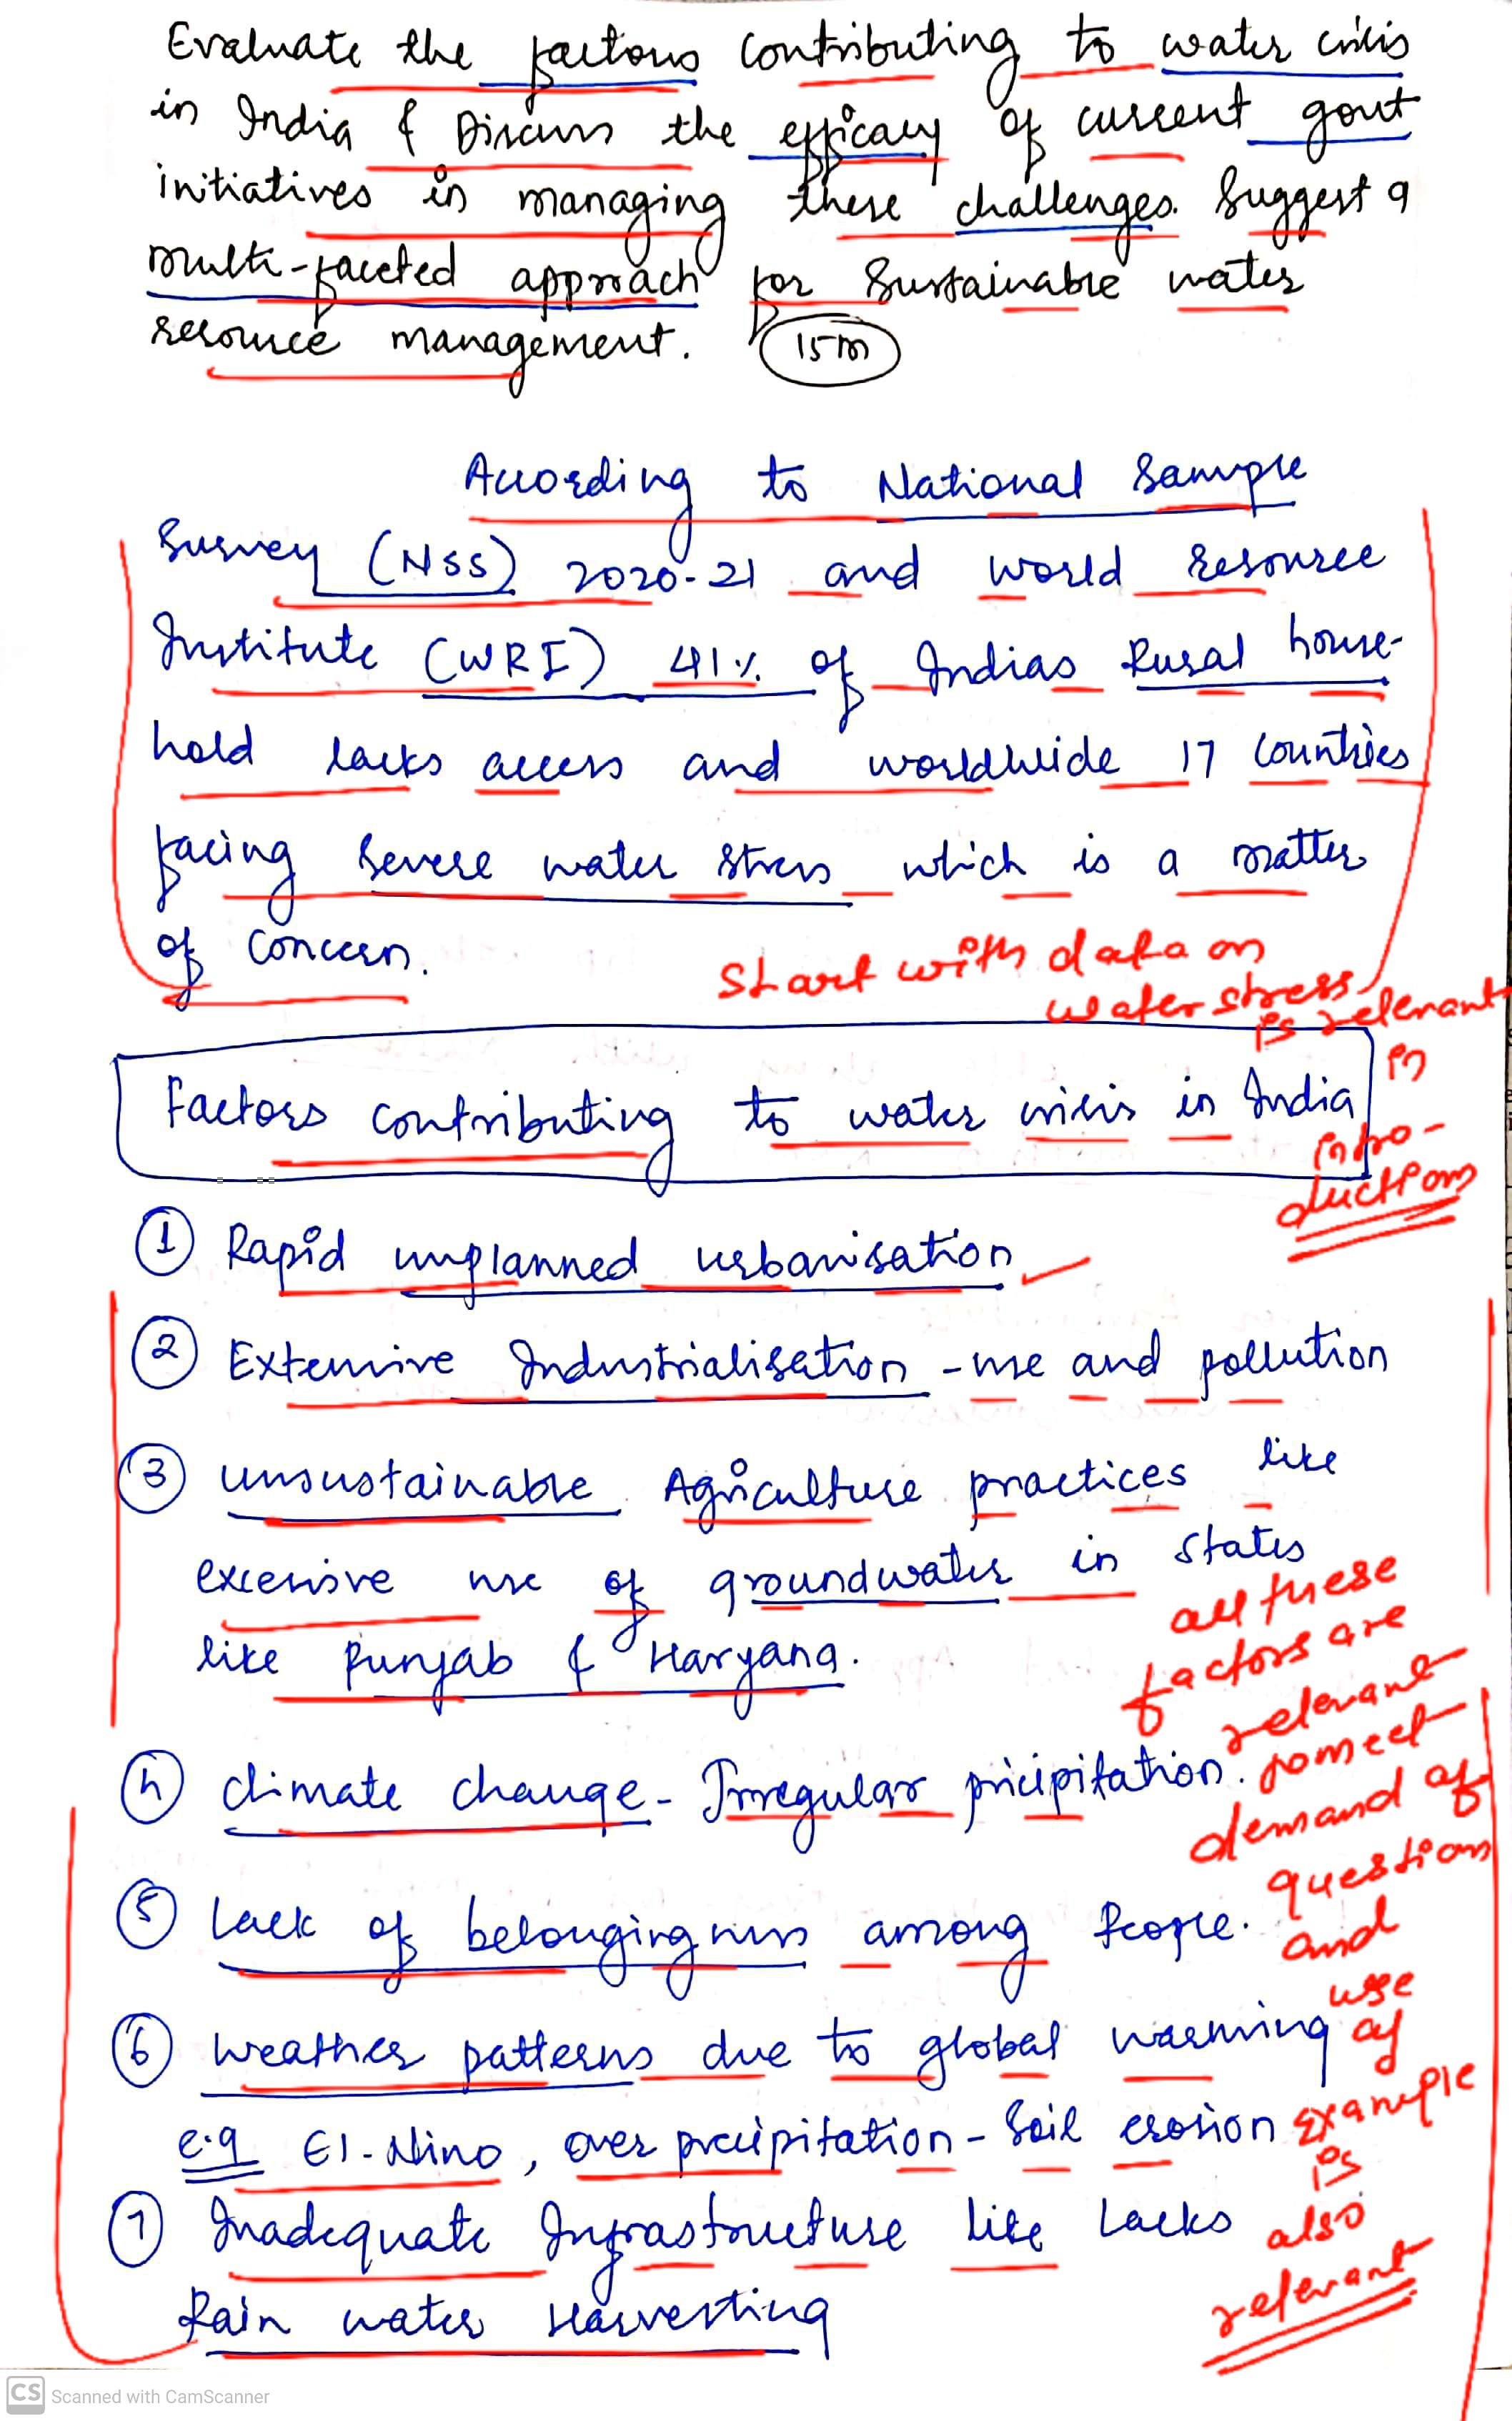 Evaluate the factors contributing to water crisis
in India & Discuss the efficacy of current govt
initiatives in managing these challenges. Suggest a
multi-faceted approach for Sustainable water
resource management. 15m
According to National Sample
Survey (NSS) 2020-21 and world resource
Institute (WRI) 41% of Indias Rural house-
hold lacks access and worldwide 17 countries
facing severe water stress which is a matter
of concern.
Start with data on
water stress
is relevant
in
intro-
duction
Factors contributing to water crisis in India
① Rapid unplanned urbanisation
② Extensive Industrialisation - use and pollution
③ unsustainable Agriculture practices like
excessive use of groundwater in states
like Punjab & Haryana.
all these
factors are
relevant
to meet
demand of
question
and
use
of
example
is
also
relevant
④ climate change - Irregular pricipitation.
⑤ lack of belongingness among People.
⑥ weather patterns due to global warming
e.g El-Nino, over precipitation - Soil erosion
⑦ Inadequate Infrastructure like Lacks
Rain water Harvesting
CS Scanned with CamScanner